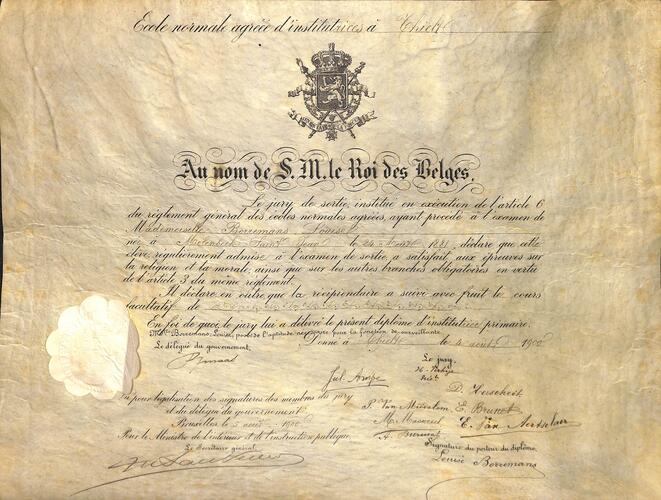 Ecole normale agréée d'institutrices à Thielt
Au nom de S. M. le Roi des Belges.
Le jury de sortie, institué en exécution de l'article 6
du règlement général des écoles normales agréées, ayant procédé à l'examen de
Mademoiselle Borremans, Louise
née à Molenbeek-Saint-Jean le 24 1881, déclare que cette
élève, régulièrement admise à l'examen de sortie, a satisfait aux épreuves sur
la religion et la morale, ainsi que sur les autres branches obligatoires en vertu
de l'article 3 du même règlement.
Il déclare en outre que la récipiendaire a suivi avec fruit le cours
facultatif de
En foi de quoi, le jury lui a délivré le présent diplôme d'institutrice primaire.
Melle Borremans, Louise, possède l'aptitude nécessaire pour la fonction de surveillante.
Donné à Thielt le 4 août 1900
Le délégué du gouvernement,
Le jury,
Vu pour légalisation des signatures des membres du jury
et du délégué du gouvernement.
P. Van E. Brunet
Bruxelles le 5 août 1900
E. Van Aertselaer
Pour le Ministre de l'intérieur et de l'instruction publique
Le Secrétaire général,
Signature du porteur du diplôme,
Louise Borremans